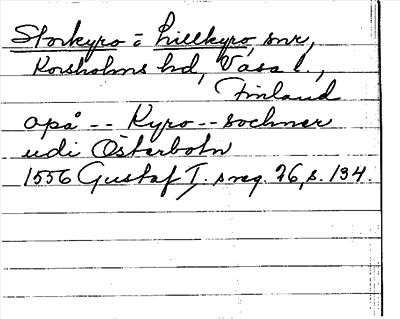 Storkyro = Lillkyro, snr,
Korsholms hd, Vasa l.,
Finland
opå -- Kyro -- sochner
udi Österbotn
1556 Gustaf I. s reg. 26, s. 134.